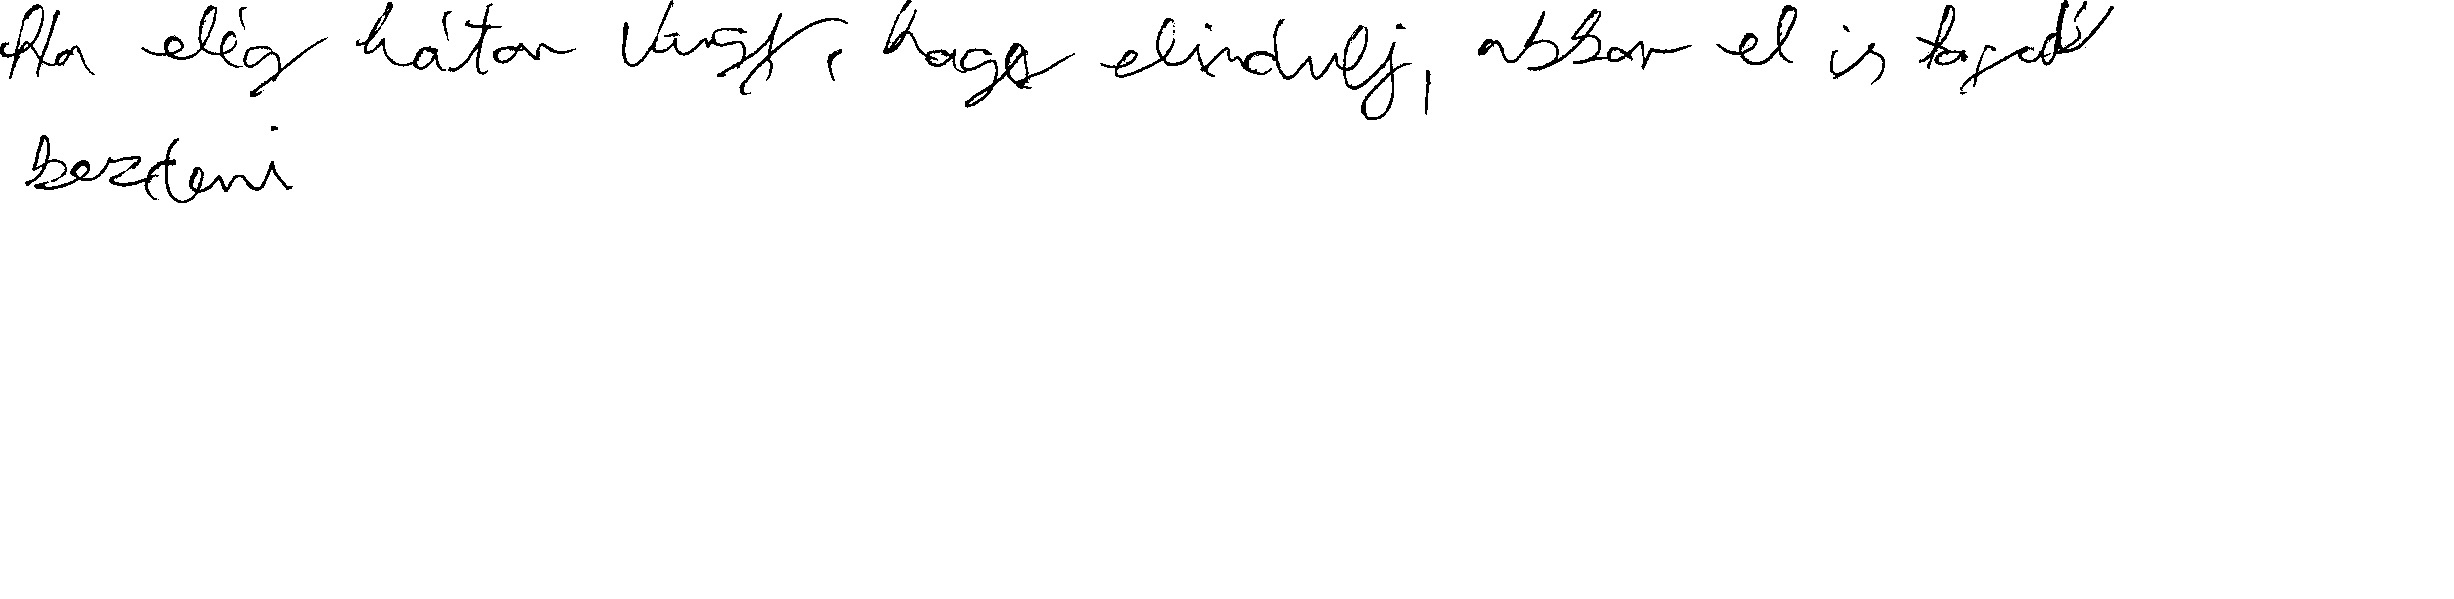 Ha elég bátor vagy, hogy elindulj, abban el is fogod
kezdeni